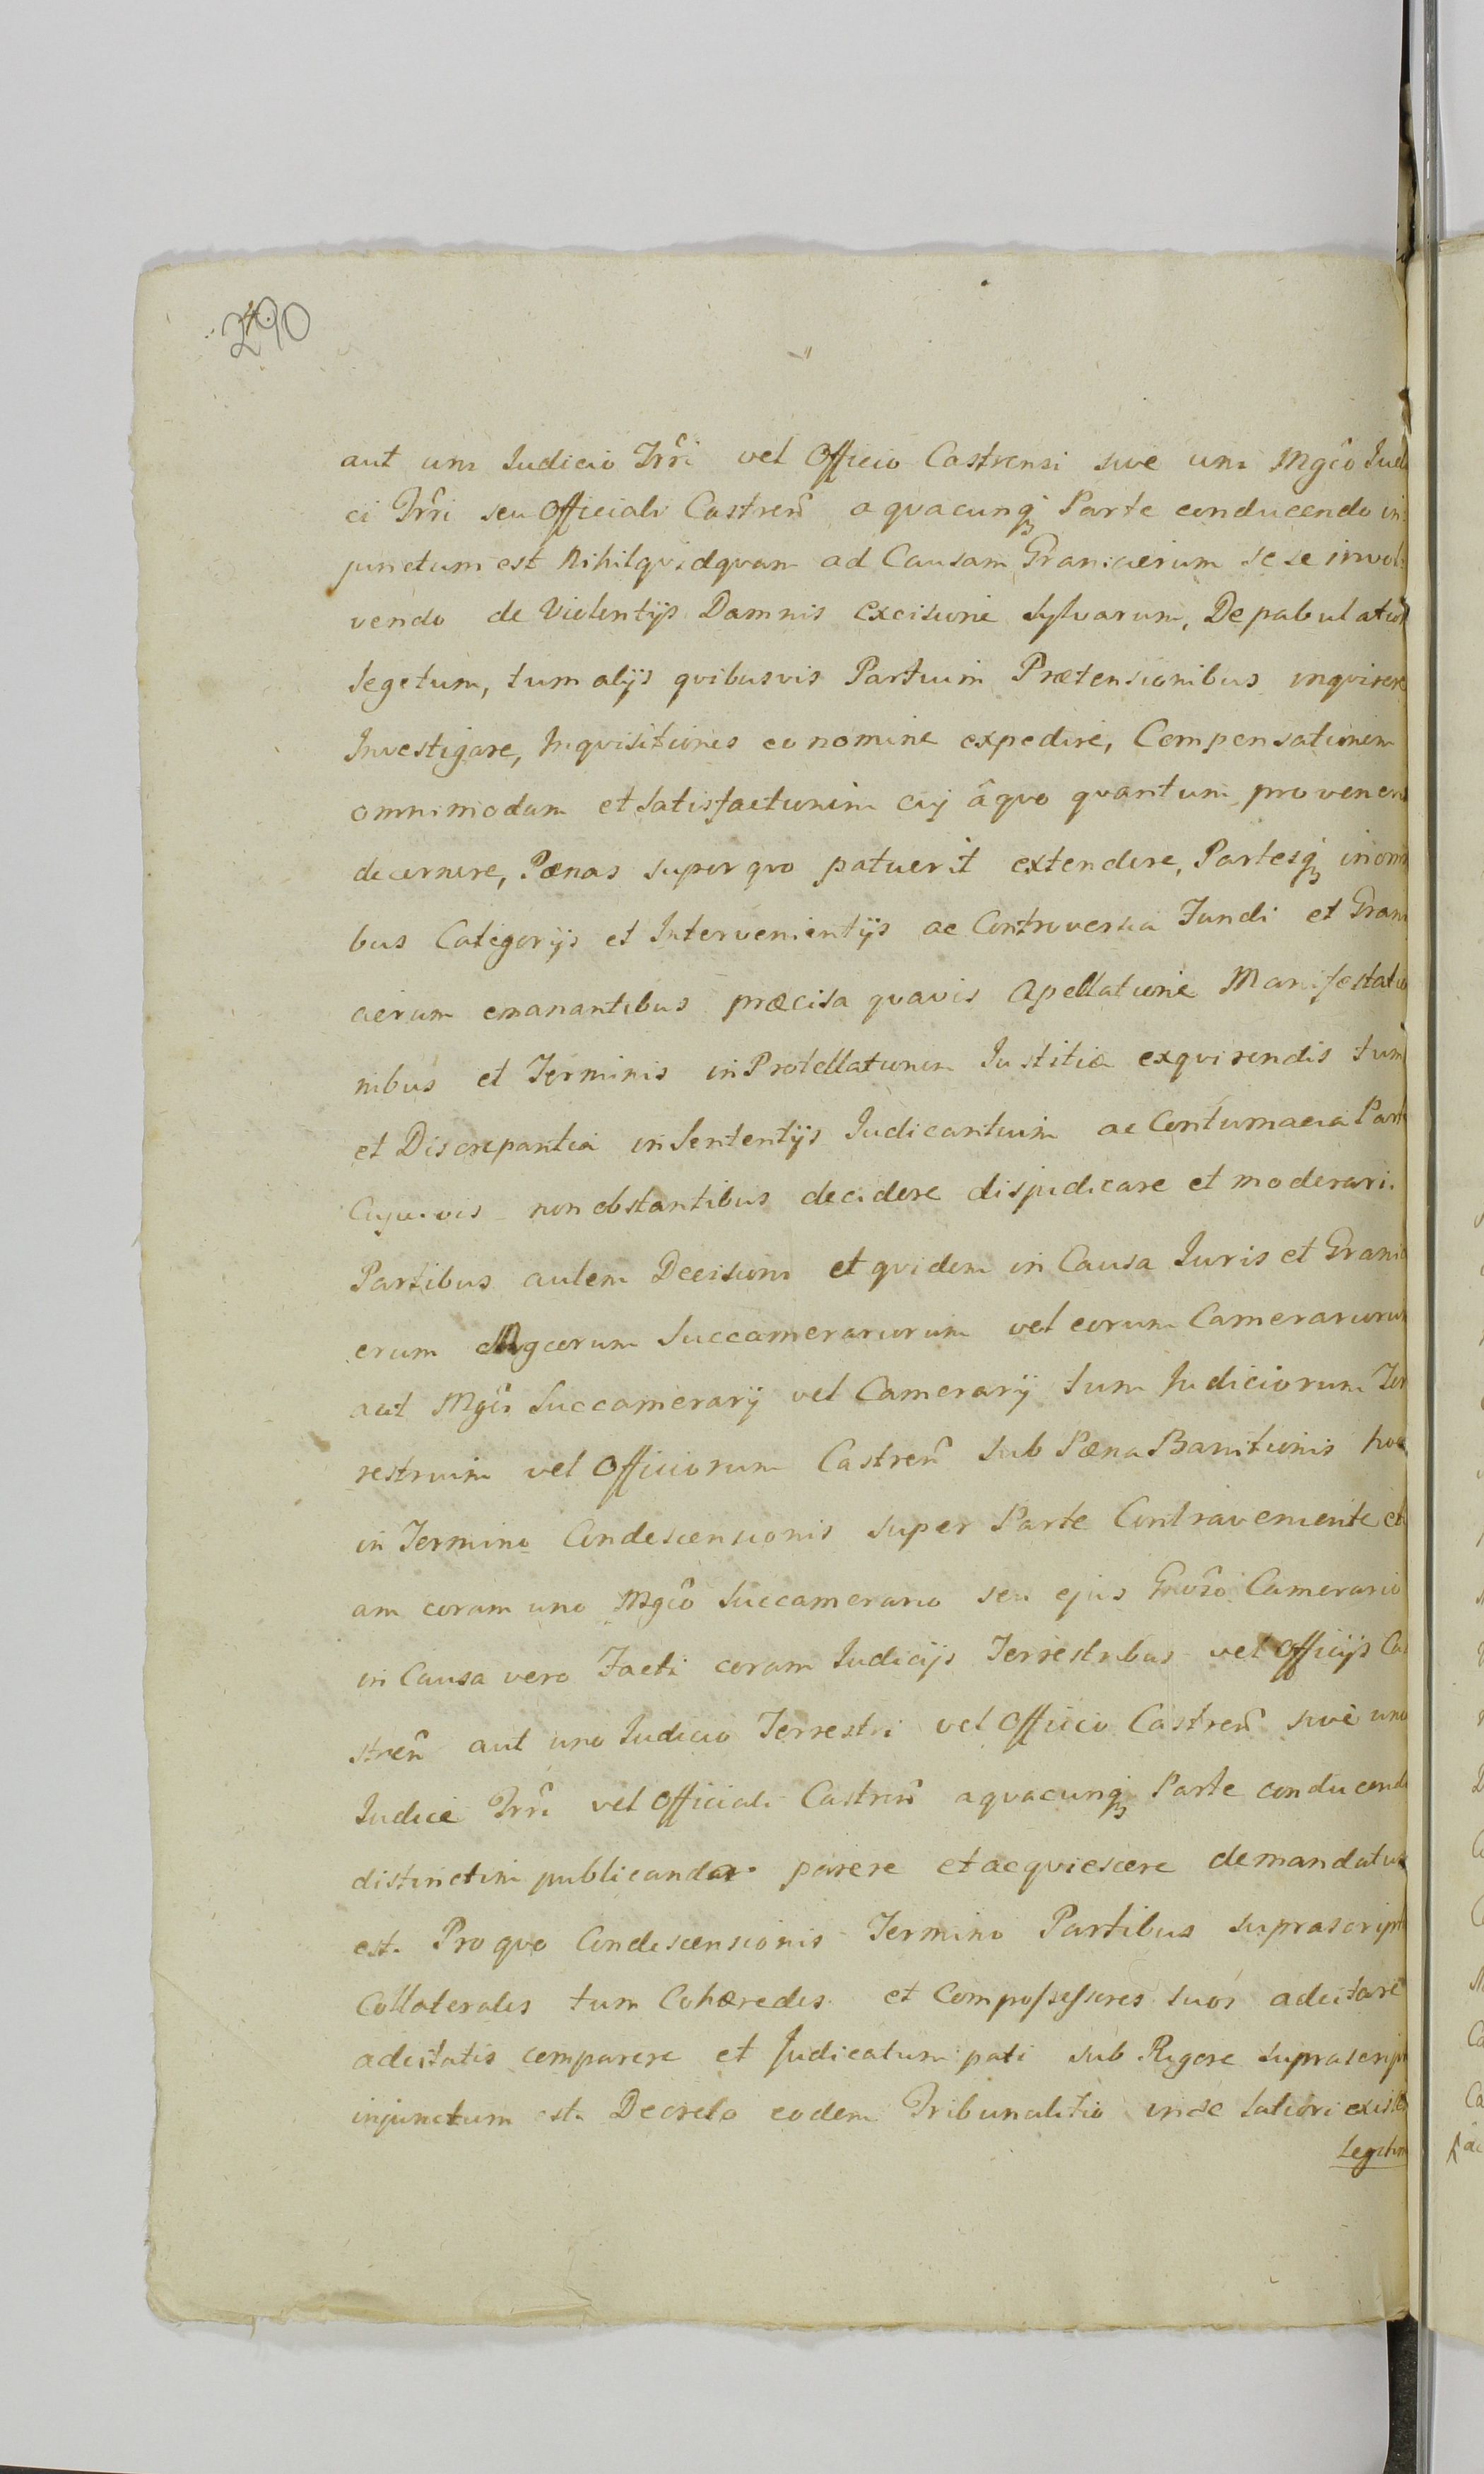 290
4.
aut uni Iudicio Trri vel Officio Castrensi sive uni Mgco Iudi
ci Trri seu Officiali Castren a qvacunq Parte conducendo in
junctum est Nihilqvidqvam ad Causam Graniicierum sese invol
vendo de Violentijs Damnis Excisione Sylvarum, Depabulation
Segetum, tum alijs qvibusvis Partium Prætensionibus inqvirere
Investigare, Inqvisitiones eo nomine expedire, Compensationem
omnimodam et Satisfactionem cuj âqvo qvantum provenerit
decernere, Pænas super qvo patuerit extendere, Partesq in om
bus Categorijs et Intervenientijs ac Controversia Fundi et Grani
cierum emanantibus præcisa qvavis Apellatione Manifestatio
nibus et Terminis in Protellationem Iustitiæ exqvirendis tum
et Discrepantia in Sententijs Iudicantium ac Contumacia Part
Cujusvis non obstantibus decidere disjudicare et moderari.
Partibus autem Decisioni et qvidem in Causa Iuris et Grani
erum Mgcorum Succamerariorum vel eorum Camerariorum
aut Mgci Succamerarij vel Camerarij tum Iudiciorum Ter
restrium vel Officiorum Castren sub Pæna Banitionis hoc
in Termino Condescensionis super Parte Contraveniente eti
am coram uno Mgco Succamerario seu ejus Gnoso Camerario
in Causa vero Facti coram Iudicijs Terrestribus vel Officijs Ca
stren aut uno Iudicio Terrestri vel Officio Castren sive uno
Iudice Trri vel Officiali Castren a qvacunq Parte conducend
distinctim publicandæ parere et acqviescere demandatum
est. Pro qvo Condescensionis Termino Partibus suprascript
Collaterales tum Cohæredes et Compossessores suos adcitare
adcitatis comparere et Judicatum pati sub Rigore suprascrip
injunctum est. Decreto eodem Tribunalitio inde latiori existen
Legitim